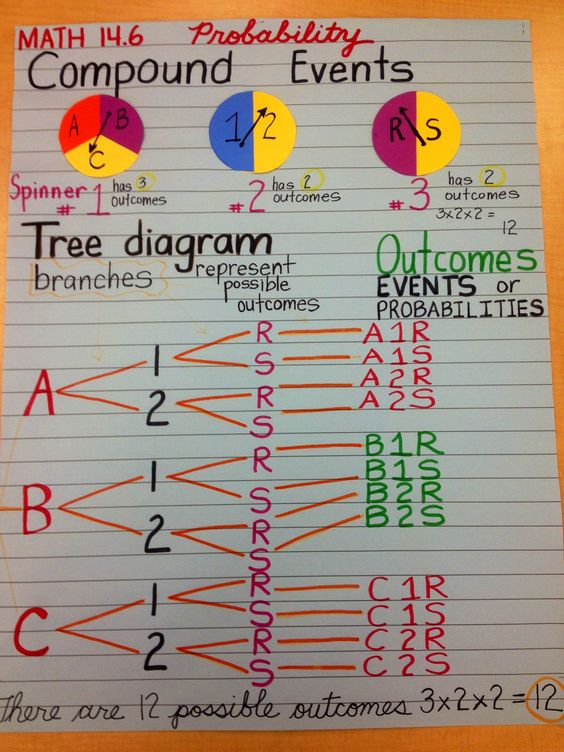 MATH 14.6 Probability
Compound Events
A B C
1 2
R S
Spinner # 1 has 3 outcomes
# 2 has 2 outcomes
# 3 has 2 outcomes
3x2x2 = 12
Tree diagram
branches represent possible outcomes
Outcomes
EVENTS or
PROBABILITIES
A
1
2
R
S
R
S
A1R
A1S
A2R
A2S
B
1
2
R
S
R
S
B1R
B1S
B2R
B2S
C
1
2
R
S
R
S
C1R
C1S
C2R
C2S
There are 12 possible outcomes 3x2x2 = 12